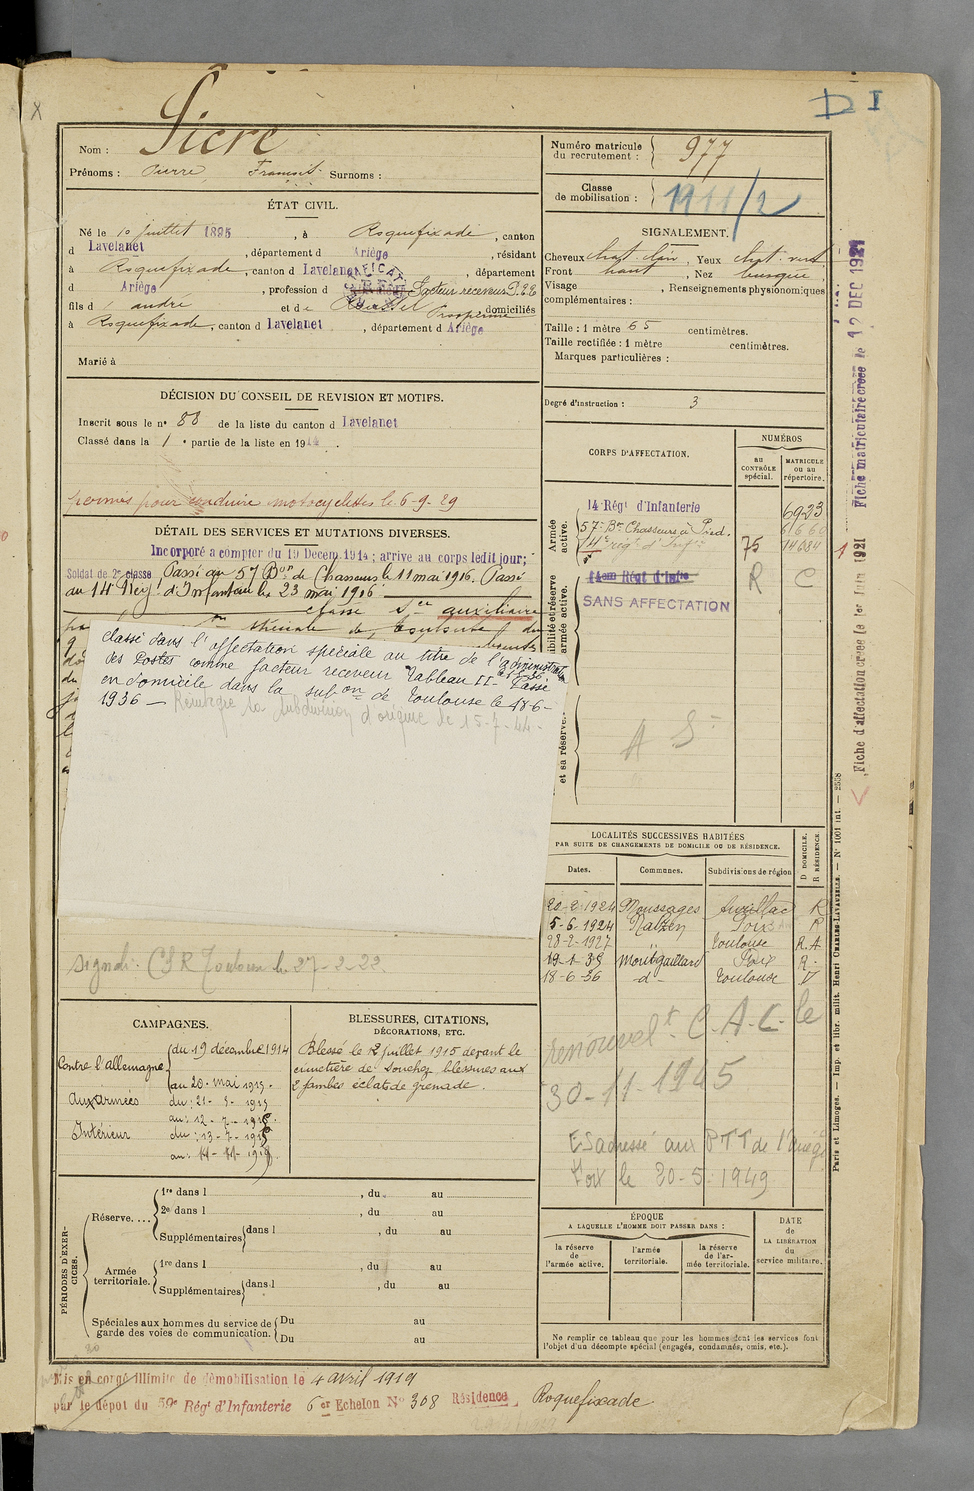 D I
X
Sicre
Nom :
Prénoms : Pierre, Surnoms :
Numéro matricule du recrutement : 977
Classe de mobilisation : 1911/2
ÉTAT CIVIL.
Né le 10 juillet 1895, à Roquefixade, canton
d Lavelanet, département d Ariège, résidant
à Roquefixade, canton d Lavelanet, département
d Ariège, profession d facteur receveur P.T.T.
fils d andré et de Prospérine domiciliés
à Roquefixade, canton d Lavelanet, département d Ariège
Marié à
SIGNALEMENT.
Cheveux chat. clair, Yeux chat. vert
Front haut, Nez busqué
Visage , Renseignements physionomiques
complémentaires :
Taille : 1 mètre 65 centimètres.
Taille rectifiée : 1 mètre centimètres.
Marques particulières :
Degré d'instruction : 3
DÉCISION DU CONSEIL DE REVISION ET MOTIFS.
Inscrit sous le n° 88 de la liste du canton d Lavelanet
Classé dans la 1 e partie de la liste en 1914.
permis pour conduire motocyclettes le 6-9-29
DÉTAIL DES SERVICES ET MUTATIONS DIVERSES.
Incorporé a compter du 19 Decem. 1914 ; arrive au corps ledit jour;
Soldat de 2e classe Passé au 57 Bon de Chasseurs le 11 mai 1916. Passé
au 14 Reg t d'Infanterie le 23 mai 1916
classé Sce auxiliaire
spéciale de Toulouse
classé dans l'affectation spéciale au titre de l'administrat.
des Postes comme facteur receveur Tableau II - Passé
en domicile dans la subon de Toulouse le 18-6-
1936 - Réintègre la subdivision d'origine le 15-7-44-
CORPS D'AFFECTATION.
NUMÉROS
au CONTRÔLE spécial.
MATRICULE ou au répertoire.
Armée active.
14 Régt d'Infanterie 6923
57e Bn Chasseurs à Pied.
14e rég t d'Infie 75 14084
14eme Régt d'Infie R C
SANS AFFECTATION
A S
et sa réserve.
LOCALITÉS SUCCESSIVES HABITÉES
PAR SUITE DE CHANGEMENTS DE DOMICILE OU DE RÉSIDENCE.
D DOMICILE.
R RÉSIDENCE.
Dates. Communes. Subdivisions de région
20-2-1924 Moussages Aurillac R
5-6-1924 Nalzen Foix R
28-2-1927 " Toulouse R.A
19-1-35 Montgaillard Foix R.
18-6-36 -d°- Toulouse D
renouvelt C.A.C. le
30-11-1945
ES adressé aux PTT de l'Ariège
Foix le 20-5-1949
signdi. CSR Toulouse le 27-2-22.
CAMPAGNES.
Contre l'allemagne
du 19 décembre 1914
au 20 mai 1915.
Aux armées du : 21-5-1915
au : 12-7-1915.
Intérieur du : 13-7-1915
BLESSURES, CITATIONS,
DÉCORATIONS, ETC.
Blessé le 12 juillet 1915 devant le
cimetière de Souchez, blessures aux
2 jambes éclats de grenade.
PÉRIODES D'EXERCICES.
Réserve....
1re dans l , du au
2e dans l , du au
Supplémentaires dans l , du au
Armée territoriale.
1re dans l , du au
Supplémentaires dans l , du au
Spéciales aux hommes du service de garde des voies de communication.
Du au
Du au
ÉPOQUE
A LAQUELLE L'HOMME DOIT PASSER DANS :
la réserve de l'armée active.
l'armée territoriale.
la réserve de l'armée territoriale.
DATE de LA LIBÉRATION du service militaire.
Ne remplir ce tableau que pour les hommes dont les services font
l'objet d'un décompte spécial (engagés, condamnés, omis, etc.).
Mis en congé illimité de démobilisation le 4 avril 1919
par le dépot du 59e Régt d'Infanterie 6 er Echelon N° 308 Résidence Roquefixade
Fiche matriculaire créée le 12 DEC 1921
Fiche d'affectation créée le 1er Juin 1921
Paris et Limoges. — Imp. et libr. milit. Henri CHARLES-LAVAUZELLE. — N° 1001 int. — 2558